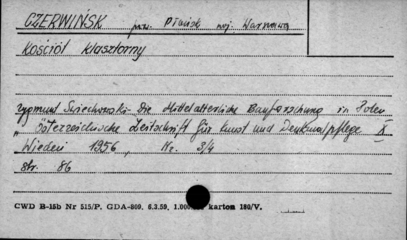 CZERWIŃSK pow. Płońsk woj. Warszawa
Kościół klasztorny
Zygmunt Świechowski - Die Mittelalterliche Bauforschung in Polen
"Österreichische Zeitschrift für Kunst und Denkmalpflege X
Wiedeń 1956, Nr. 3/4
str. 86
CWD B-15b Nr 515/P. GDA-809. 6.3.59. 1.000 karton 180/V.